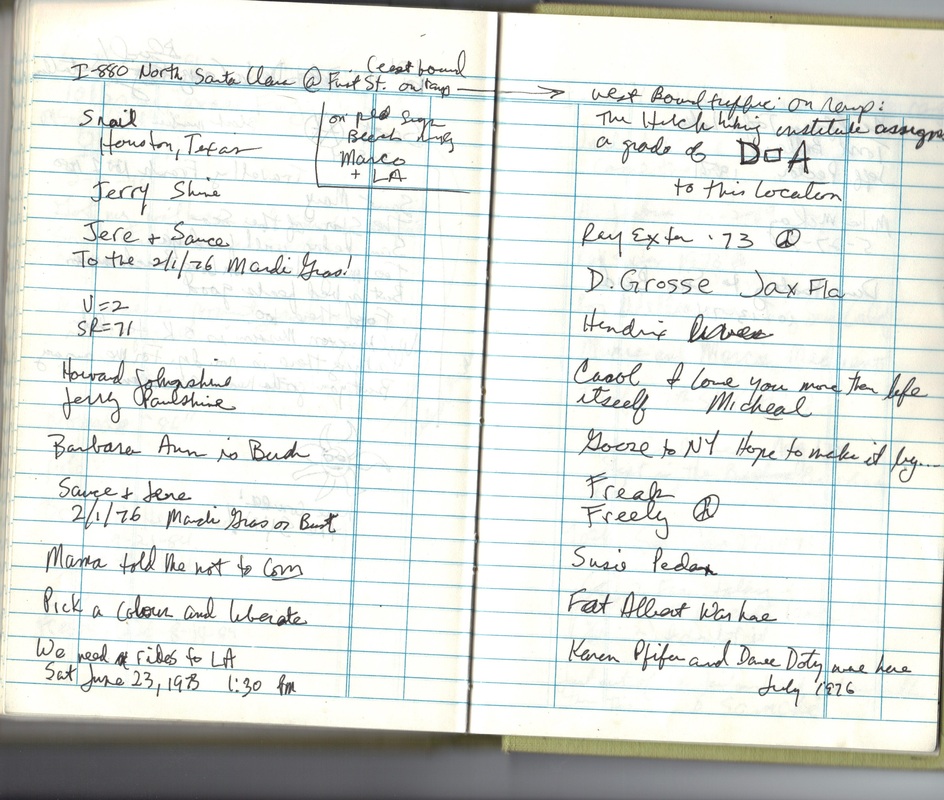 (east bound
I-880 North Santa Clara @ First St. on ramp
Snail
Houston, Texas
on red sign
Beech
Marco
+ LA
Jerry Shine
Jere + Sauce
To the 2/1/76 Mardi Gras!
U=2
SR=71
Howard Johnpshine
Jerry Paulshine
Barbara Ann is Bush
Sauce + Jere
2/1/76 Mardi Gras or Bust
Mama told me not to Com
Pick a colour and liberate
We need rides to LA
Sat June 23, 1973 1:30 Pm
West Bound traffic on ramp:
The Hitch hiking institute assigns
a grade of D A
to this location
Ray Exter '73
D. Grosse Jax Fla
Hendrix lives
Carol I love you more then life
itself Micheal
Goose to NY Hope to make it by...
Freak
Freely
Susie
Fat Albert Was hae
Karen Pfifer and Dave Doty was here
July 1976